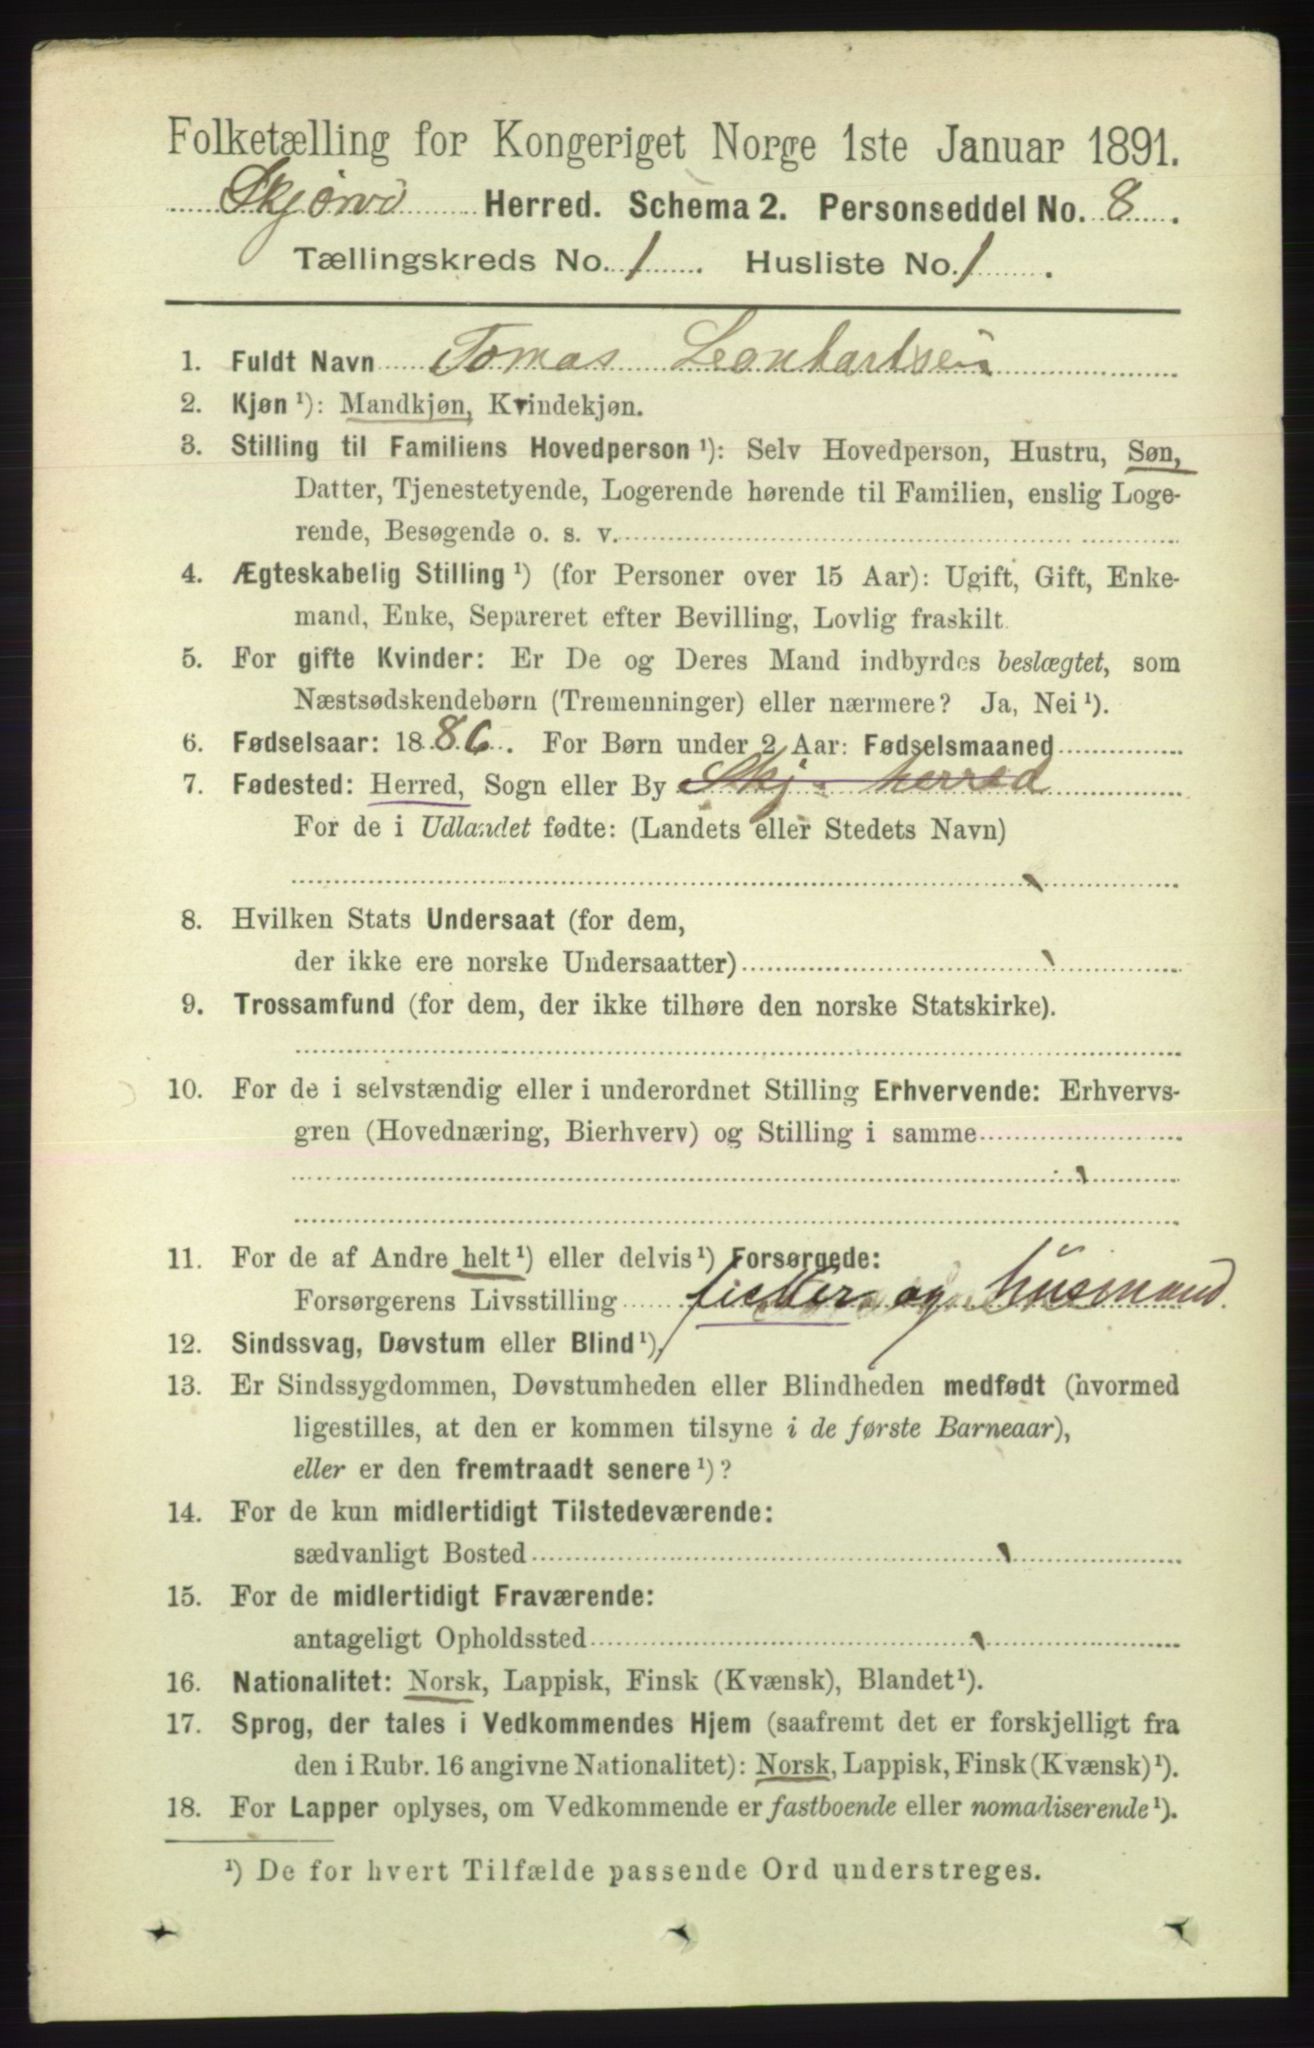 Folketælling for Kongeriget Norge 1ste Januar 1891.
Skjørvö Herred. Schema 2. Personseddel No. 8.
Tællingskreds No. 1. Husliste No. 1.
1. Fuldt Navn Tomas Leonhartsen
2. Kjøn ¹): Mandkjøn, Kvindekjøn.
3. Stilling til Familiens Hovedperson ¹): Selv Hovedperson, Hustru, Søn,
Datter, Tjenestetyende, Logerende hørende til Familien, enslig Loge-
rende, Besøgende o. s. v.
4. Ægteskabelig Stilling ¹) (for Personer over 15 Aar): Ugift, Gift, Enke-
mand, Enke, Separeret efter Bevilling, Lovlig fraskilt
5. For gifte Kvinder: Er De og Deres Mand indbyrdes beslægtet, som
Næstsødskendebørn (Tremenninger) eller nærmere? Ja, Nei ¹).
6. Fødselsaar: 1886. For Børn under 2 Aar: Fødselsmaaned
7. Fødested: Herred, Sogn eller By Skj. herred
For de i Udlandet fødte: (Landets eller Stedets Navn)
8. Hvilken Stats Undersaat (for dem,
der ikke ere norske Undersaatter)
9. Trossamfund (for dem, der ikke tilhøre den norske Statskirke).
10. For de i selvstændig eller i underordnet Stilling Erhvervende: Erhvervs-
gren (Hovednæring, Bierhverv) og Stilling i samme
11. For de af Andre helt ¹) eller delvis ¹) Forsørgede:
Forsørgerens Livsstilling fisker og husmand.
12. Sindssvag, Døvstum eller Blind ¹),
13. Er Sindssygdommen, Døvstumheden eller Blindheden medfødt (hvormed
ligestilles, at den er kommen tilsyne i de første Barneaar),
eller er den fremtraadt senere ¹)?
14. For de kun midlertidigt Tilstedeværende:
sædvanligt Bosted
15. For de midlertidigt Fraværende:
antageligt Opholdssted
16. Nationalitet: Norsk, Lappisk, Finsk (Kvænsk), Blandet ¹).
17. Sprog, der tales i Vedkommendes Hjem (saafremt det er forskjelligt fra
den i Rubr. 16 angivne Nationalitet): Norsk, Lappisk, Finsk (Kvænsk) ¹).
18. For Lapper oplyses, om Vedkommende er fastboende eller nomadiserende ¹).
¹) De for hvert Tilfælde passende Ord understreges.